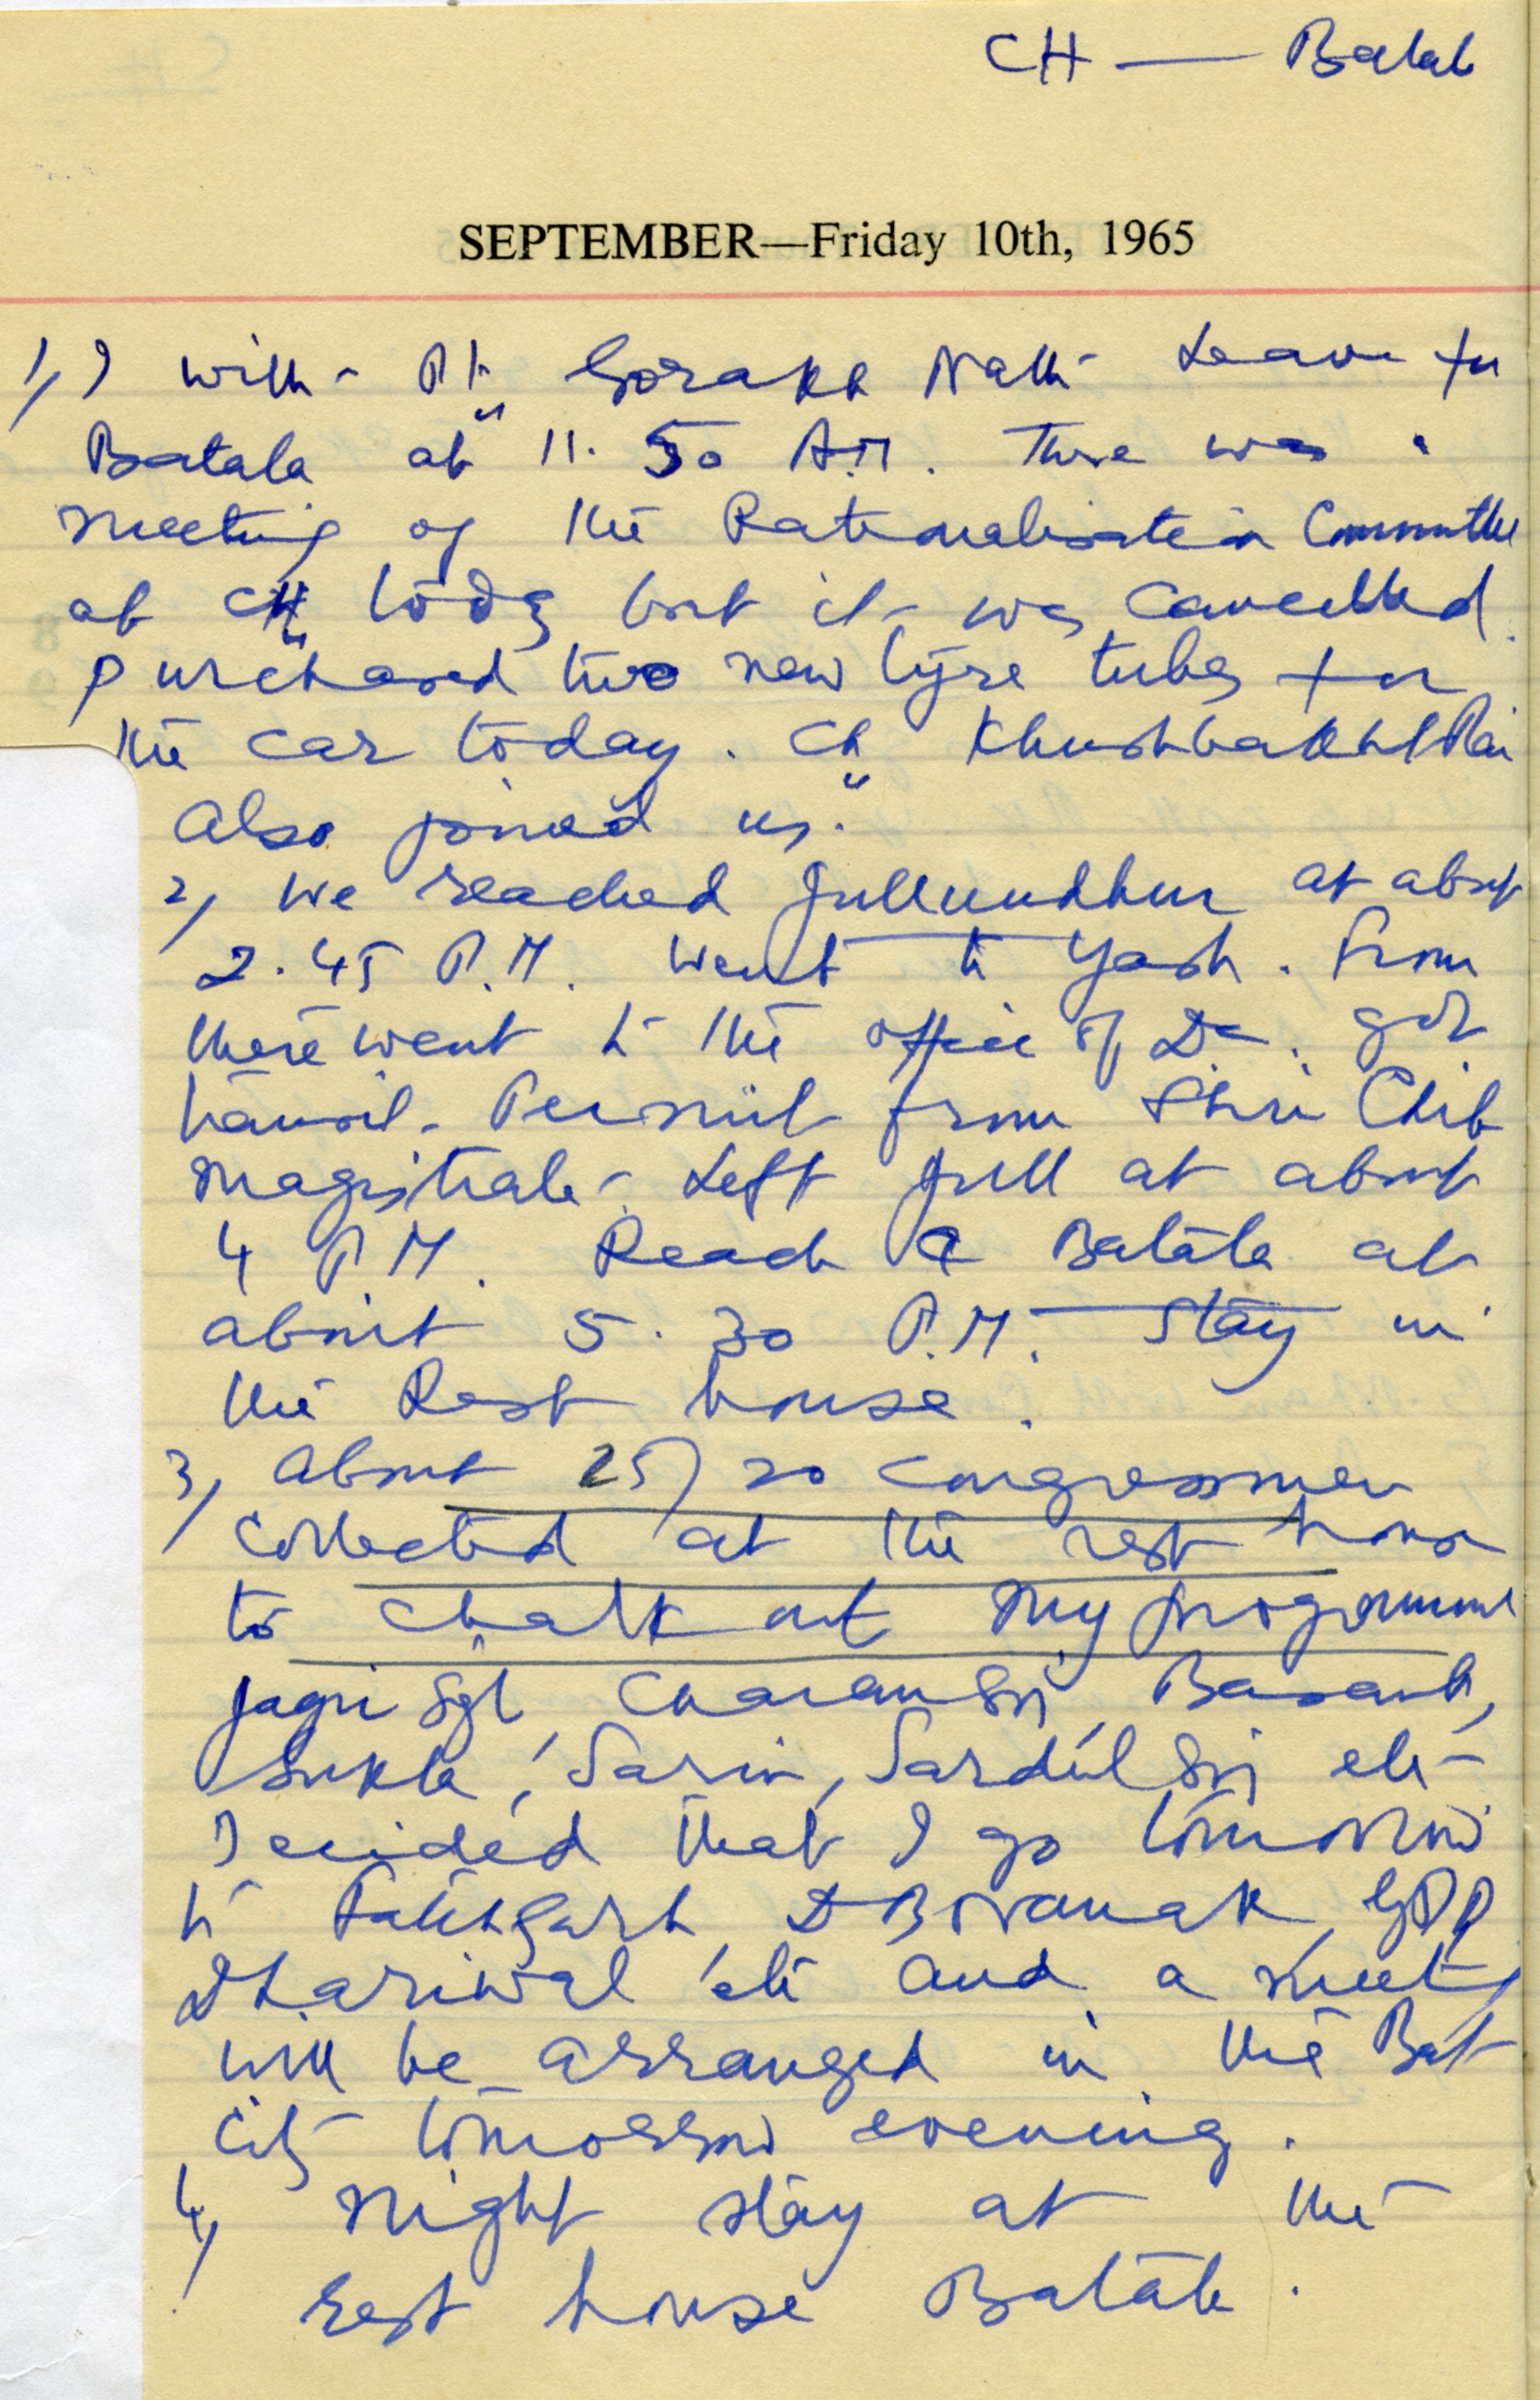 CH — Batala
SEPTEMBER—Friday 10th, 1965
1, I with Pt. Gorakh Nath leave for
Batala at 11. 50 A.M. There was a
meeting of the Rationalisation Committee
at CH today but it was cancelled.
purchased two new tyre tubes for
the car today. Ch. Khushbakht Rai
also joined us.
2, We reached Jullundhur at about
2.45 P.M. went to Yash. From
there went to the office of DC. got
transit Permit from Shri Chib
magistrate. Left Jull at about
4 P.M. Reach Batala at
about 5.30 P.M. Stay in
the Rest house.
3, About 25/20 congressmen
collected at the rest house
to chalk out my programme
Jagir Sgh, Charan Sgh, Basant,
Sukla, Sarin, Sardul Sgh etc
Decided that I go tomorrow
to Fatehgarh, DB Nanak,
Dhariwal etc and a meeting
will be arranged in the Bat
City tomorrow evening.
4, Night stay at the
rest house Batala.